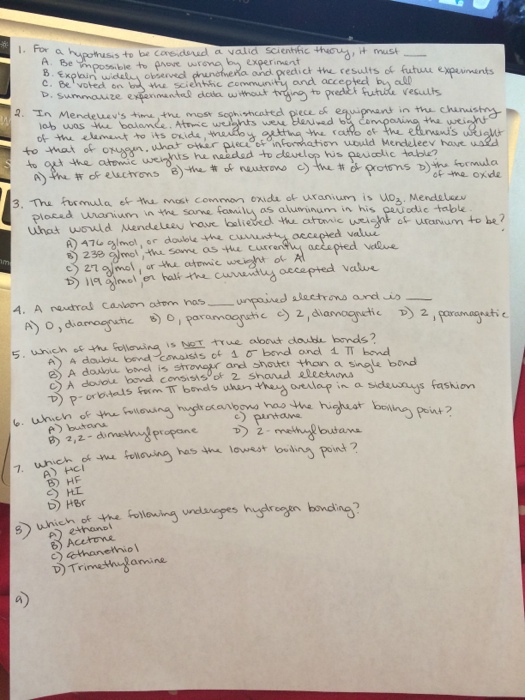 1. For a hypothesis to be considered a valid scientific theory, it must ___
A. Be impossible to prove wrong by experiment
B. Explain widely observed phenomena and predict the results of future experiments
C. Be voted on by the scientific community and accepted by all
D. Summarize experimental data without trying to predict future results
2. In Mendeleev's time, the most sophisticated piece of equipment in the chemistry
lab was the balance. Atomic weights were derived by comparing the weight
of the element to its oxide, thereby getting the ratio of the element's weight
to that of oxygen. What other piece of information would Mendeleev have used
to get the atomic weights he needed to develop his periodic table?
A) the # of electrons B) the # of neutrons C) the # of protons D) the formula
of the oxide
3. The formula of the most common oxide of uranium is UO3. Mendeleev
placed uranium in the same family as aluminum in his periodic table.
What would Mendeleev have believed the atomic weight of uranium to be?
A) 476 g/mol, or double the currently accepted value
B) 238 g/mol, the same as the currently accepted value
C) 27 g/mol, or the atomic weight of Al
D) 119 g/mol, or half the currently accepted value
4. A neutral carbon atom has ___ unpaired electrons and is ___
A) 0, diamagnetic B) 0, paramagnetic C) 2, diamagnetic D) 2, paramagnetic
5. Which of the following is NOT true about double bonds?
A) A double bond consists of 1 σ bond and 1 π bond
B) A double bond is stronger and shorter than a single bond
C) A double bond consists of 2 shared electrons
D) p-orbitals form π bonds when they overlap in a sideways fashion
6. Which of the following hydrocarbons has the highest boiling point?
A) butane C) pentane
B) 2,2-dimethylpropane D) 2-methylbutane
7. Which of the following has the lowest boiling point?
A) HCl
B) HF
C) HI
D) HBr
8) Which of the following undergoes hydrogen bonding?
A) ethanol
B) Acetone
C) Ethanethiol
D) Trimethylamine
9)